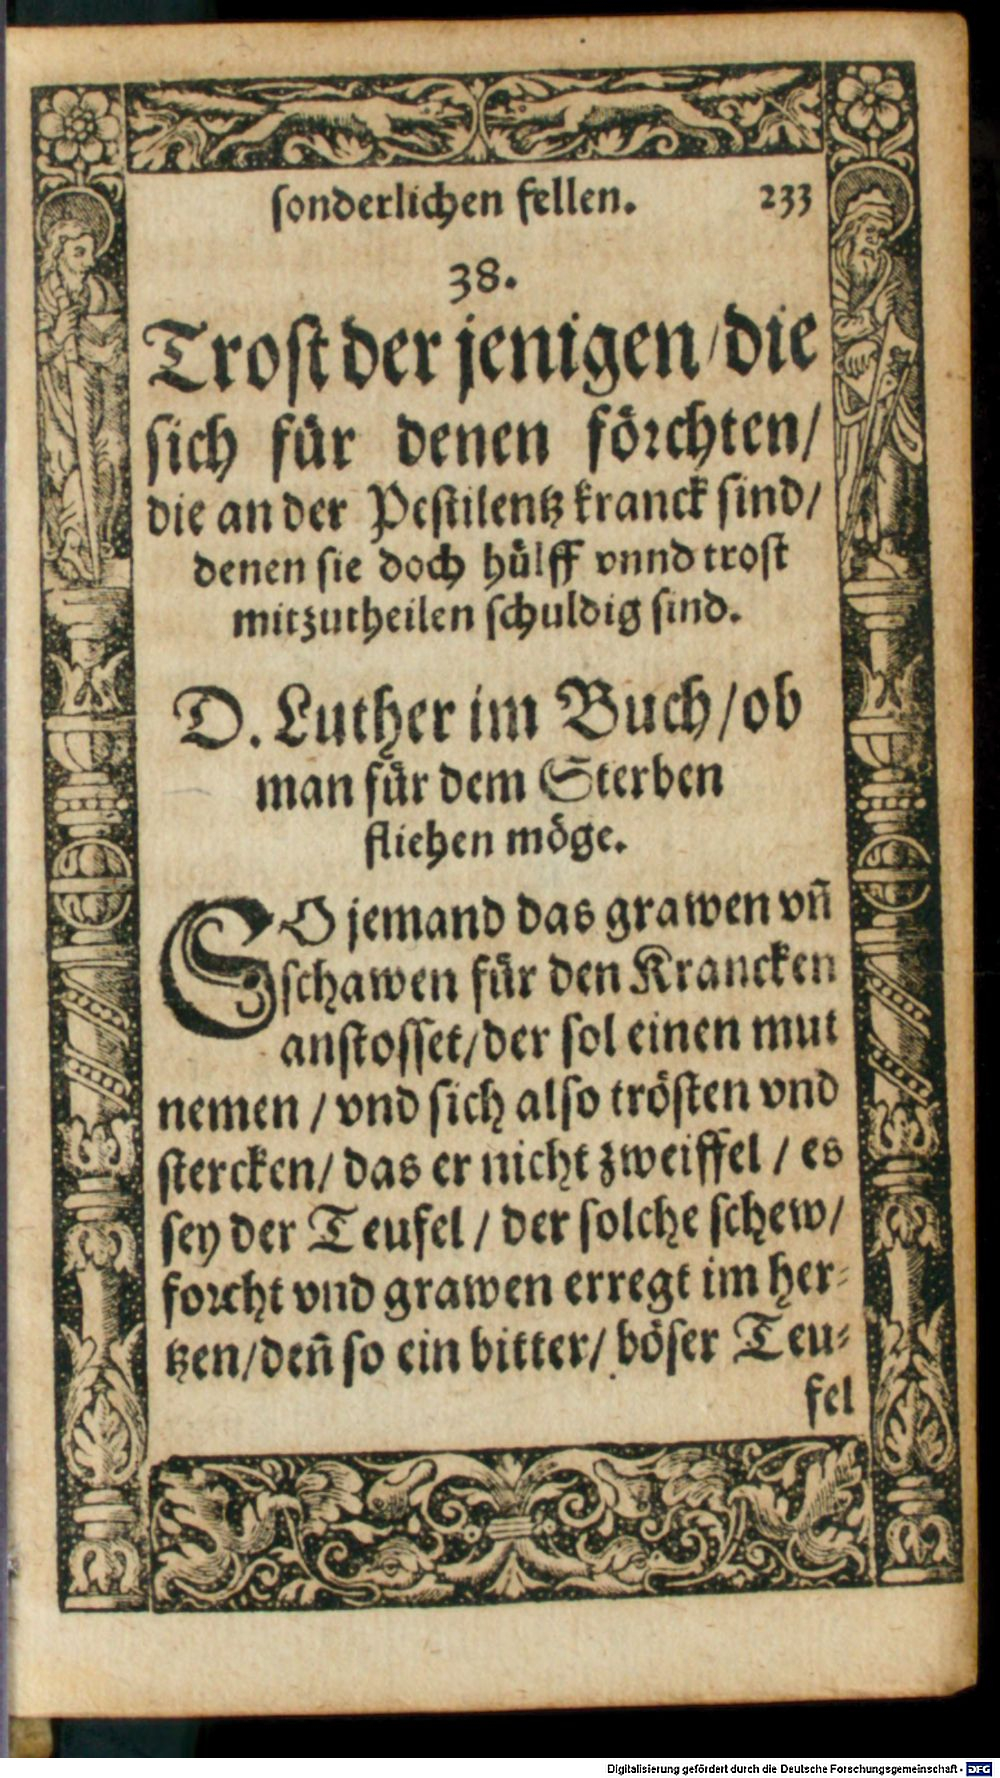 sonderlichen fellen. 233
38.
Trost der jenigen/die
sich für denen förchten/
die an der Pestilentz kranck sind/
denen sie doch hülff vnnd trost
mitzutheilen schuldig sind.
D. Luther im Buch/ob
man für dem Sterben
fliehen möge.
SO jemand das grawen vñ
schawen für den Krancken
anstosset/der sol einen mut
nemen / vnd sich also trösten vnd
stercken/ das er nicht zweiffel / es
sey der Teufel / der solche schew/
forcht vnd grawen erregt im her-
tzen/deñ so ein bitter/ böser Teu-
fel
Digitalisierung gefördert durch die Deutsche Forschungsgemeinschaft - DFG